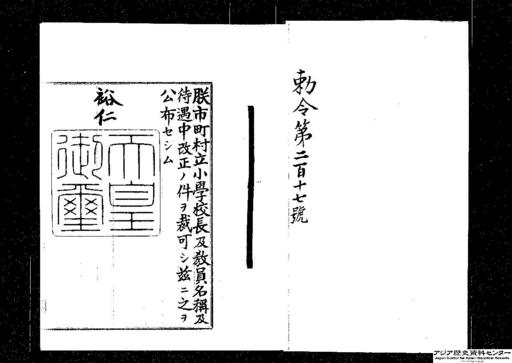 勅令第二百十七號
朕市町村立小學校長及敎員名稱及
待遇中改正ノ件ヲ裁可シ茲ニ之ヲ
公布セシム
裕仁
天皇
御璽
アジア歴史資料センター
Japan Center for Asian Historical Records